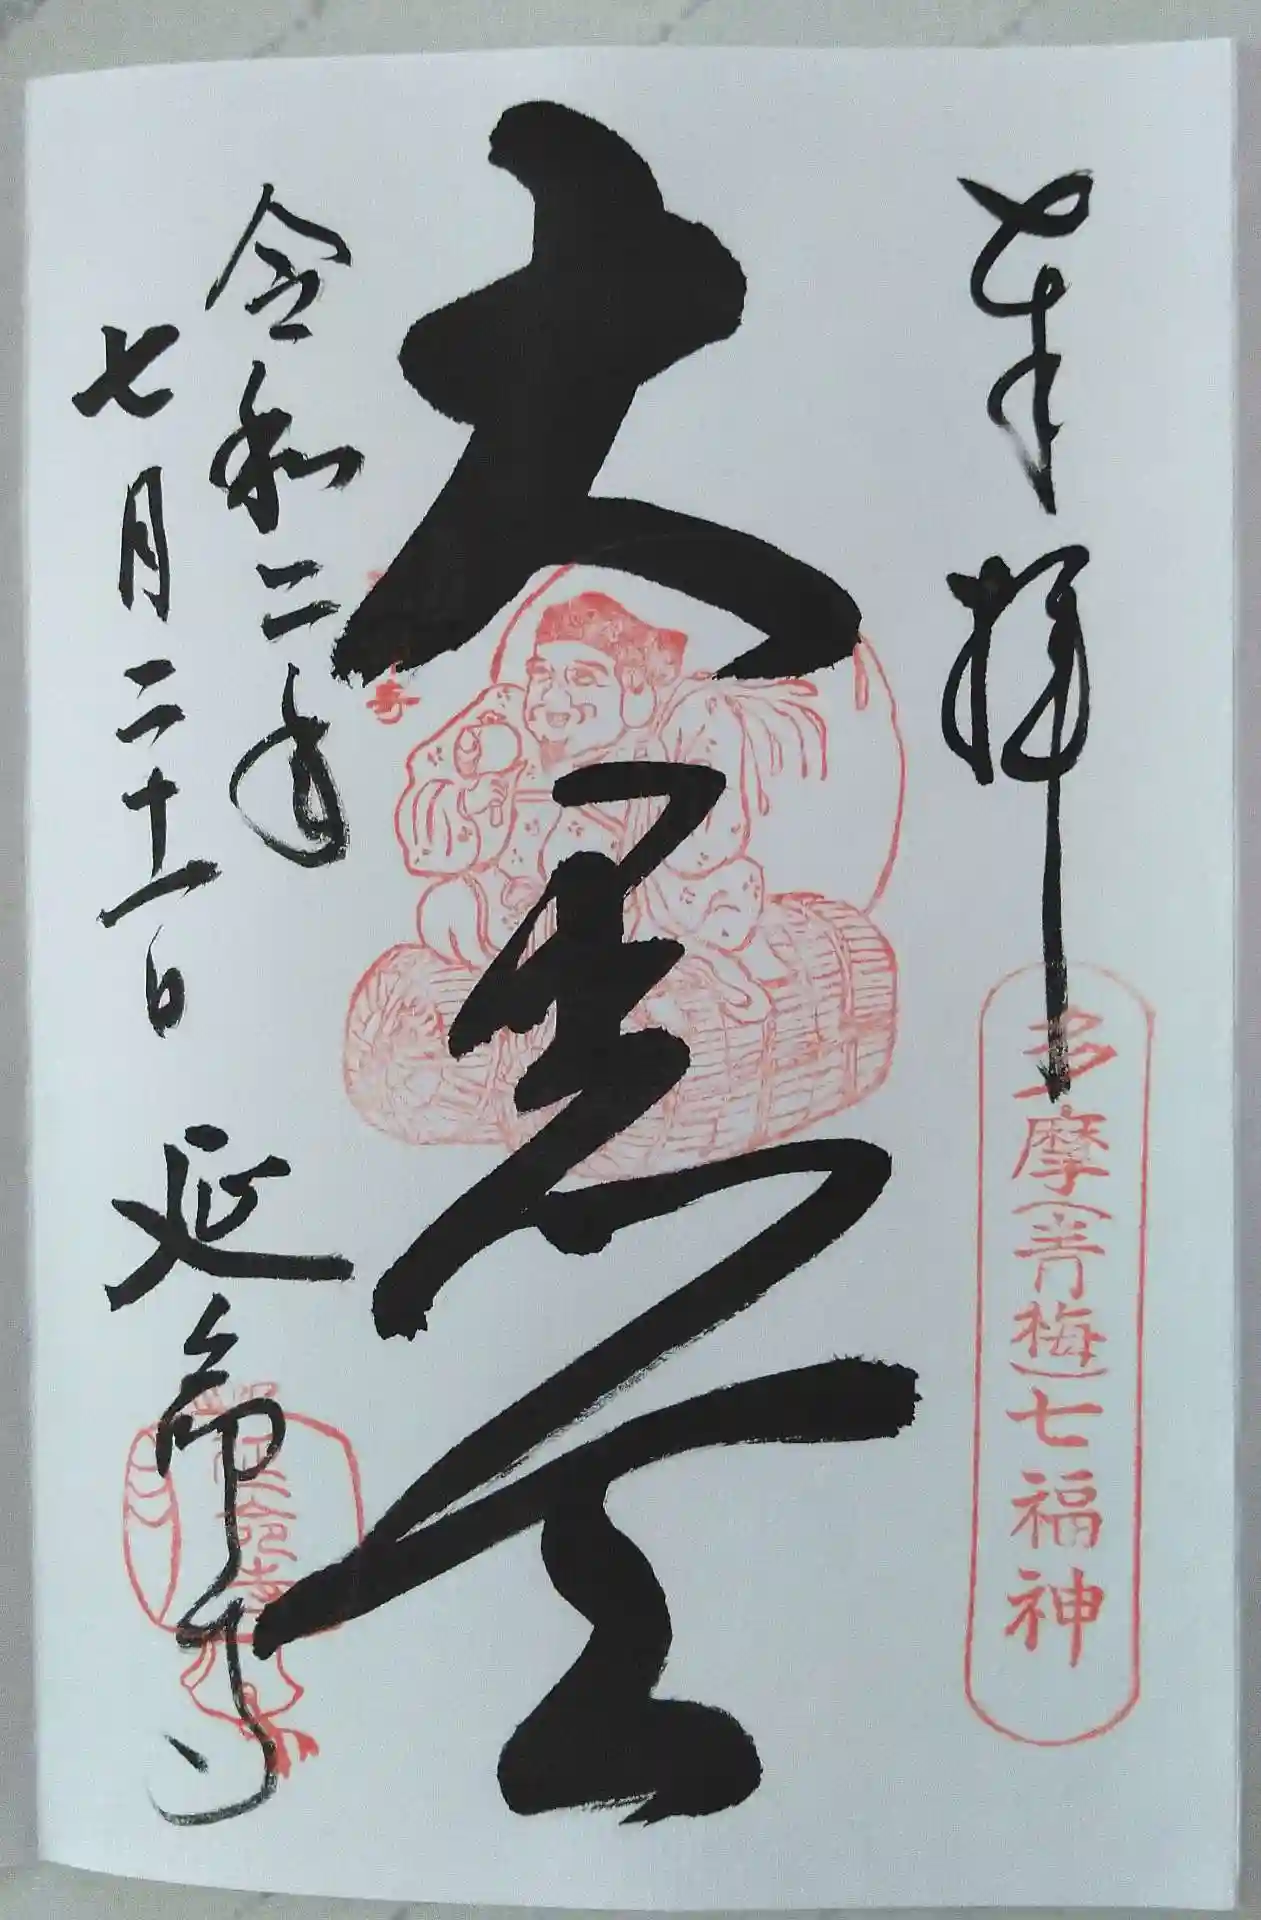 奉拝
多摩(青梅)七福神
大黒天
令和二年
七月二十一日 延命寺